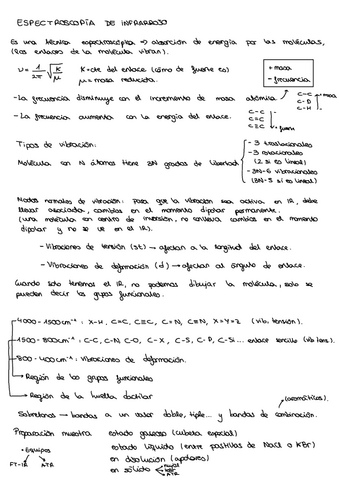 ESPECTROSCOPÍA DE INFRARROJO
Es una técnica espectroscópica → absorción de energía por las moléculas,
(los enlaces de la molécula vibran).
ν = 1/2π √K/μ K = cte del enlace (cómo de fuerte es)
μ = masa reducida.
+ masa
- frecuencia
- La frecuencia disminuye con el incremento de masa atómica
C-C
C-D
C-H
masa
- La frecuencia aumenta con la energía del enlace.
C-C
C=C
C≡C
+ fuerte
Tipos de vibración:
Molécula con N átomos tiene 3N grados de libertad
- 3 traslacionales
- 3 rotacionales
(2 si es lineal)
- 3N-6 vibracionales
(3N-5 si es lineal)
Modos normales de vibración: Para que la vibración sea activa en IR, debe
llevar asociada, cambios en el momento dipolar permanente.
(una molécula con centro de inversión, no conlleva cambios en el momento
dipolar y no se ve en el IR).
- Vibraciones de tensión (st) → afectan a la longitud del enlace.
- Vibraciones de deformación (d) → afectan al ángulo de enlace.
Cuando solo tenemos el IR, no podemos dibujar la molécula, solo se
pueden decir los grupos funcionales.
- 4000 - 1500 cm⁻¹ : X-H, C=C, C≡C, C=N, C≡N, X=Y=Z (vib. tensión).
- 1500 - 800 cm⁻¹ : C-C, C-N, C-O, C-X, C-S, C-P, C-Si... enlace sencillo (vib tens).
- 800 - 400 cm⁻¹ : vibraciones de deformación.
→ Región de los grupos funcionales
→ Región de la huella dactilar
(aromáticos).
Sobretonos → bandas a un valor doble, triple... y bandas de combinación.
Preparación muestra
estado gaseoso (cubeta especial)
estado líquido (entre pastillas de NaCl o KBr)
en disolución (apolares)
en sólido
ATR
• Equipos
FT-IR
ATR